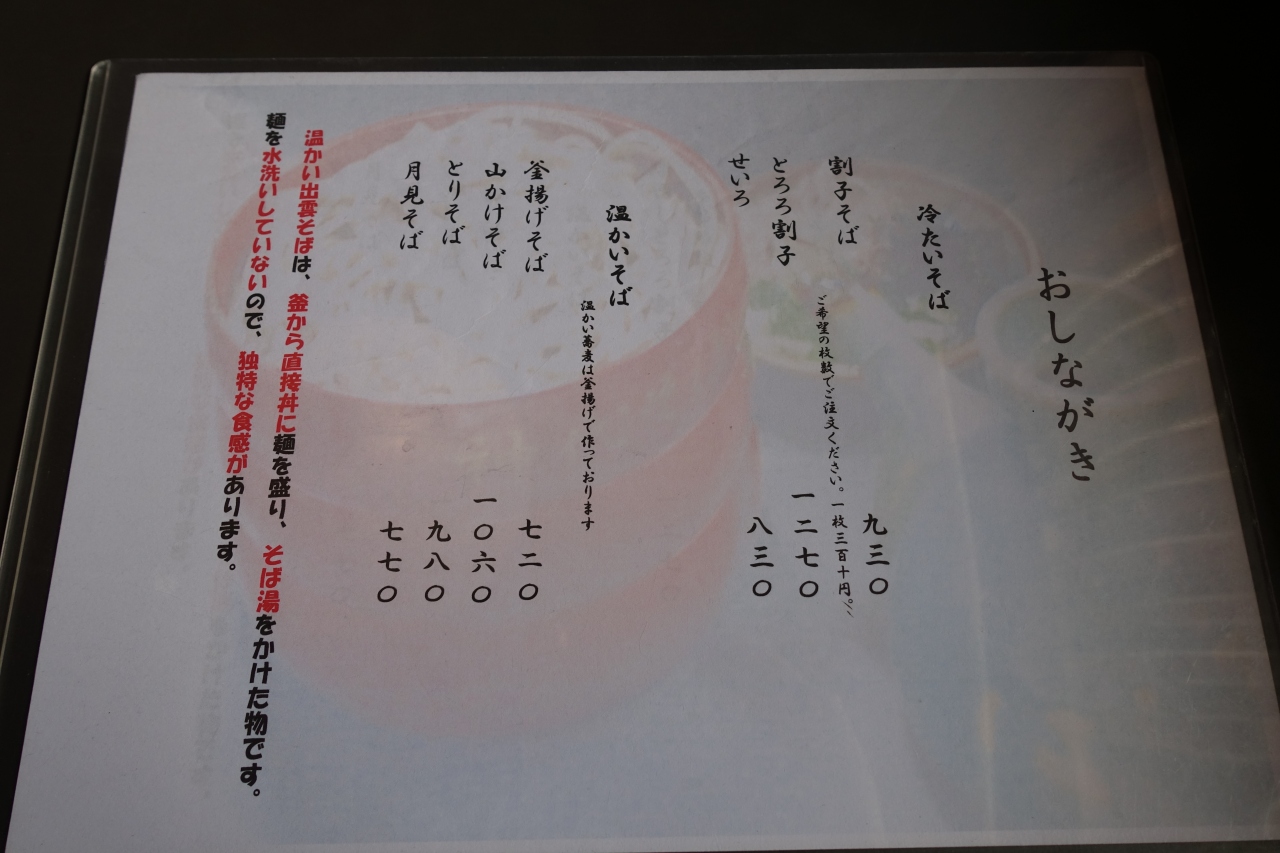 おしながき
冷たいそば
割子そば 九三〇
ご希望の枚数でご注文ください。一枚三百十円。
とろろ割子 一二七〇
せいろ 八三〇
温かいそば
温かい蕎麦は釜揚げで作っております
釜揚げそば 七二〇
山かけそば 一〇六〇
とりそば 九八〇
月見そば 七七〇
温かい出雲そばは、釜から直接丼に麺を盛り、そば湯をかけた物です。
麺を水洗いしていないので、独特な食感があります。